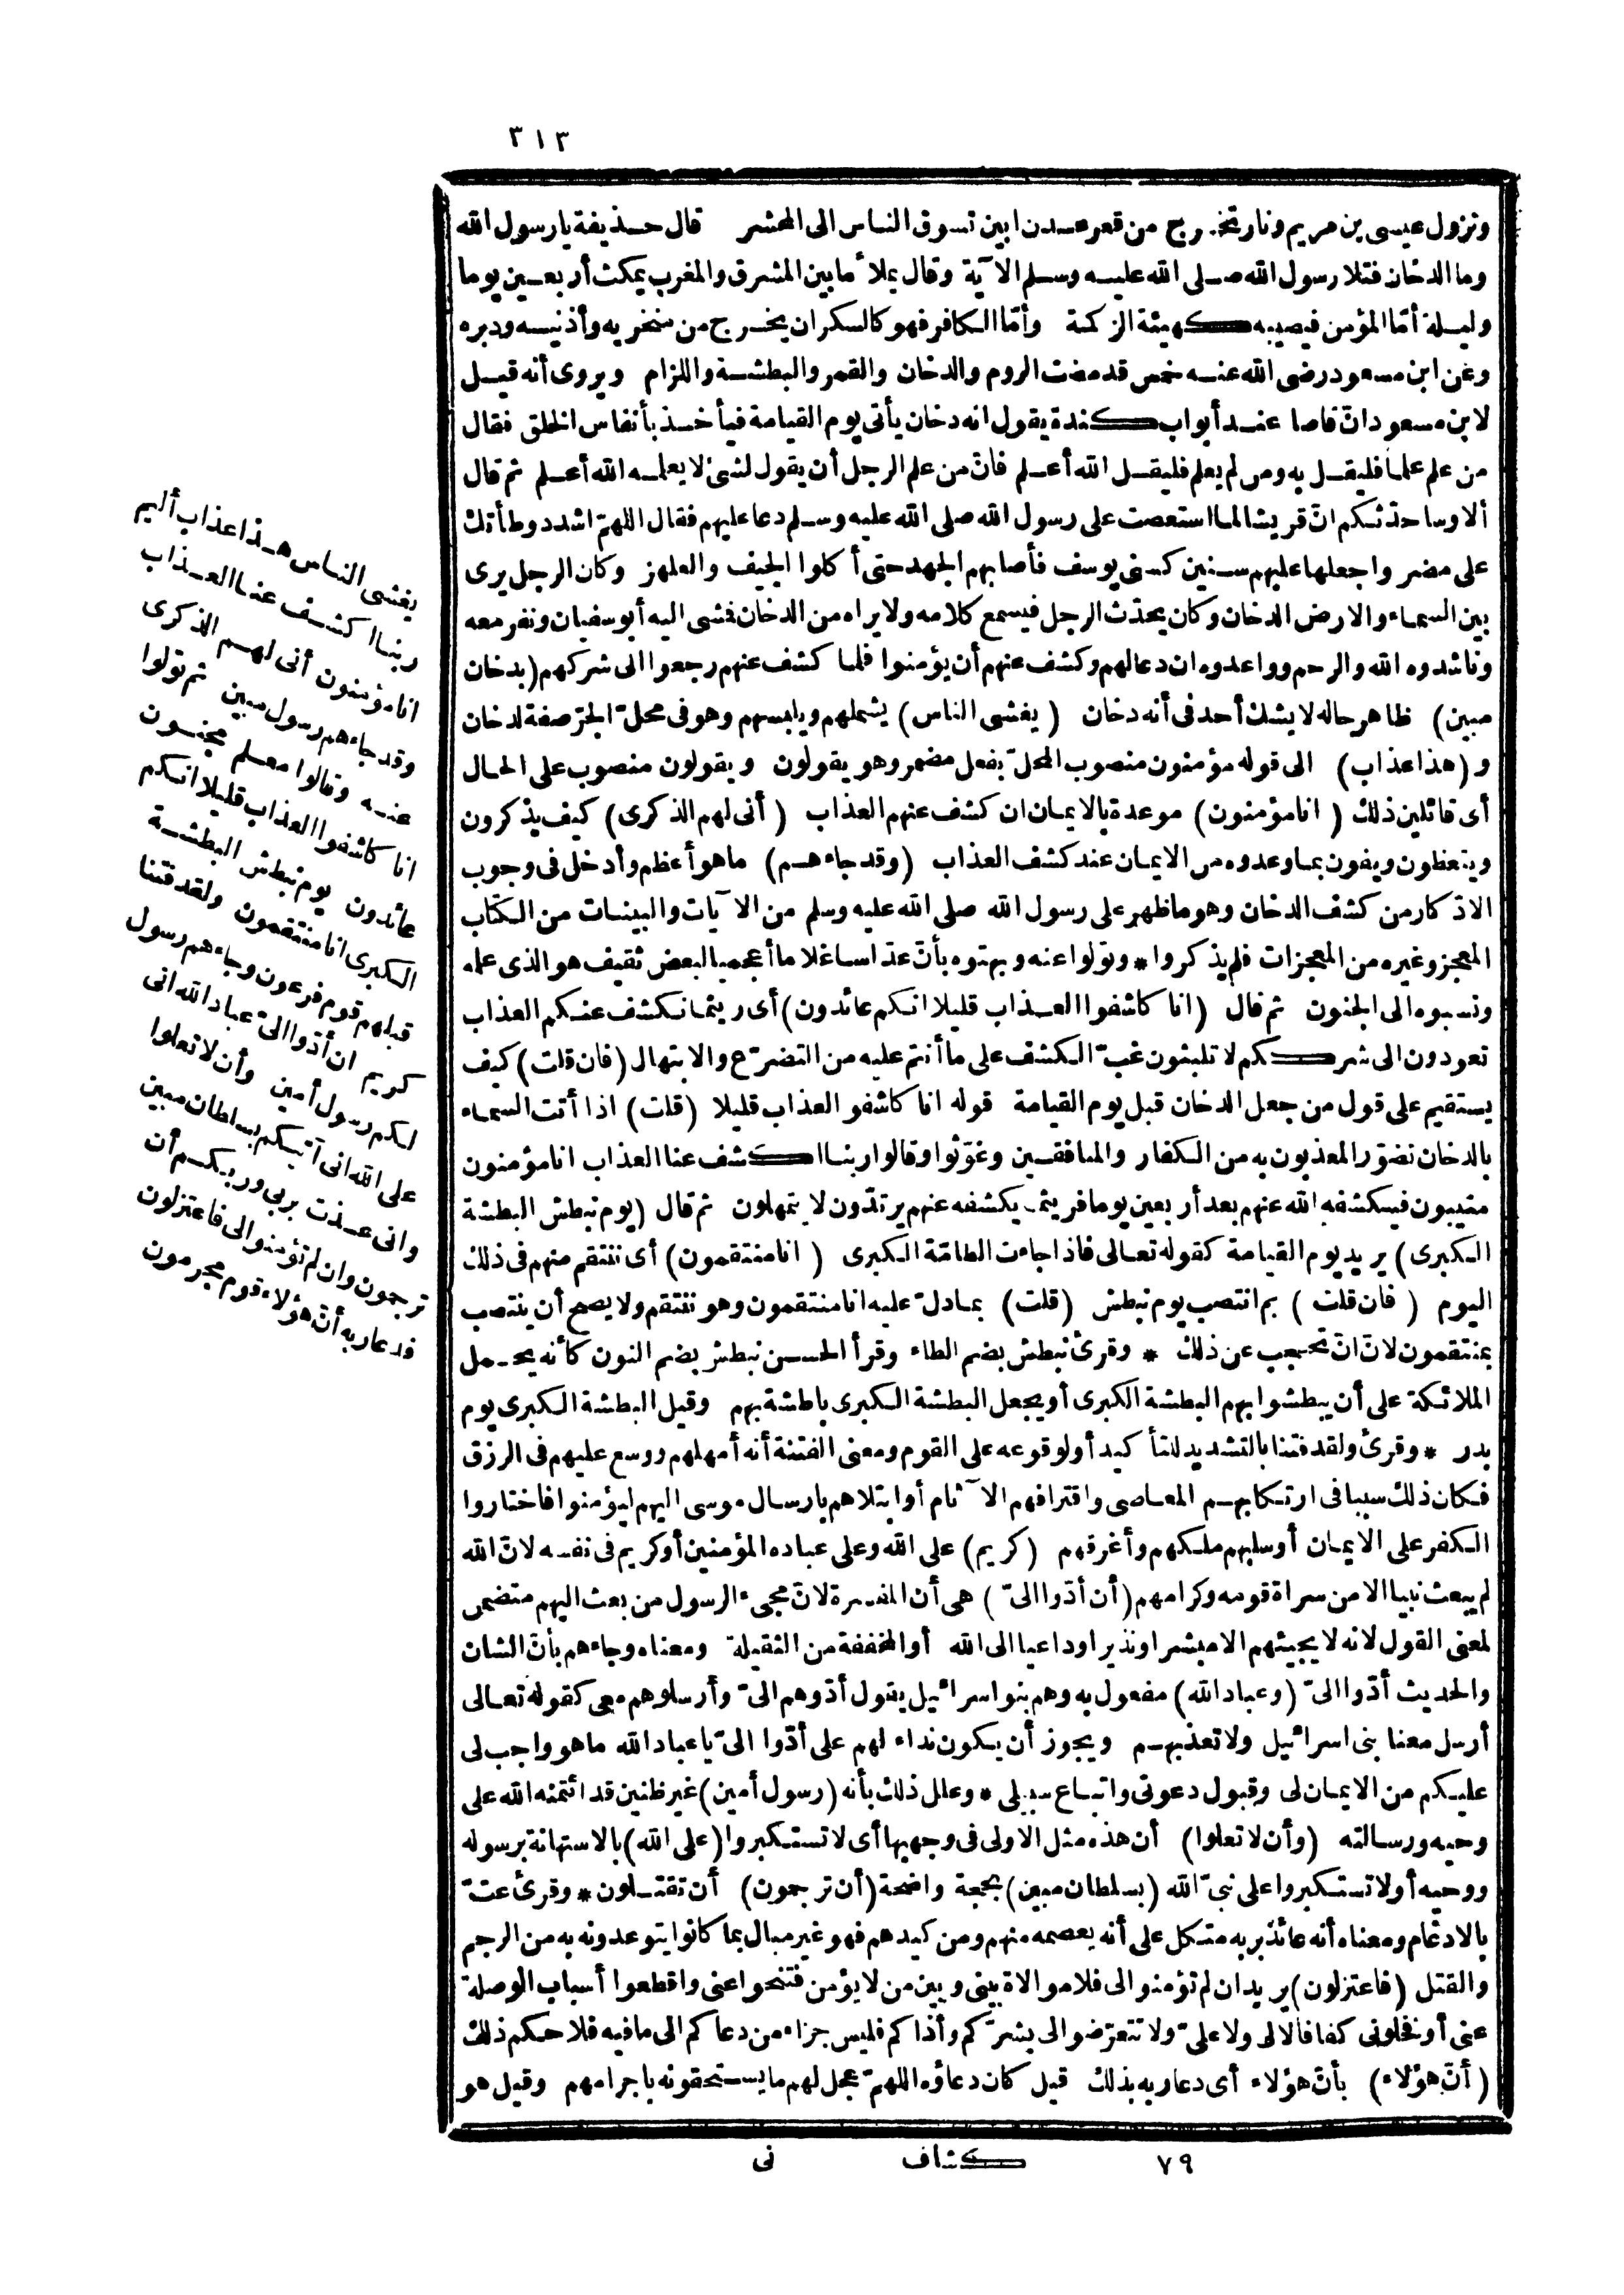 ٣١٣
ونزول عيسى بن مريم ونار تخرج من قعر عدن ابين تسوق الناس الى المحشر قال حذيفة يا رسول الله
وما الدخان فتلا رسول الله صلى الله عليه وسلم الآية وقال يملأ ما بين المشرق والمغرب يمكث أربعين يوما
وليلة أمّا المؤمن فيصيبه كهيئة الزكمة وأمّا الكافر فهو كالسكران يخرج من منخريه وأذنيه ودبره
وعن ابن مسعود رضى الله عنه خمس قد مضت الروم والدخان والقمر والبطشة واللزام ويروى أنه قيل
لابن مسعود انّ قاصا عند أبواب كندة يقول انه دخان يأتى يوم القيامة فيأخذ بأنفاس الخلق فقال
من علم علما فليقل به ومن لم يعلم فليقل الله أعلم فانّ من علم الرجل أن يقول لشئ لا يعلمه الله أعلم ثم قال
ألا وسأحدّثكم انّ قريشا لما استعصت على رسول الله صلى الله عليه وسلم دعا عليهم فقال اللهمّ اشدد وطأتك
على مضر واجعلها عليهم سنين كسنى يوسف فأصابهم الجهد حتى أكلوا الجيف والعلهز وكان الرجل يرى
بين السماء والارض الدخان وكان يحدّث الرجل فيسمع كلامه ولا يراه من الدخان فمشى اليه أبو سفيان ونفر معه
وناشدوه الله والرحم وواعدوه ان دعا لهم وكشف عنهم أن يؤمنوا فلما كشف عنهم رجعوا الى شركهم (بدخان
مبين) ظاهر حاله لا يشك أحد فى أنه دخان (يغشى الناس) يشملهم ويلبسهم وهو فى محلّ الجرّ صفة لدخان
و (هذا عذاب) الى قوله مؤمنون منصوب المحلّ بفعل مضمر وهو يقولون ويقولون منصوب على الحال
أى قائلين ذلك (انا مؤمنون) موعدة بالايمان ان كشف عنهم العذاب (أنى لهم الذكرى) كيف يذكرون
ويتعظون ويفون بما وعدوه من الايمان عند كشف العذاب (وقد جاءهم) ما هو أعظم وأدخل فى وجوب
الاذكار من كشف الدخان وهو ما ظهر على رسول الله صلى الله عليه وسلم من الآيات والبينات من الكتاب
المعجز وغيره من المعجزات فلم يذكروا * وتولوا عنه وبهتوه بأنّ عدّاسا غلاما أعجميا لبعض ثقيف هو الذى علمه
ونسبوه الى الجنون ثم قال (انا كاشفوا العذاب قليلا انكم عائدون) أى ريثما نكشف عنكم العذاب
تعودون الى شرككم لا تلبثون غبّ الكشف على ما أنتم عليه من التضرّع والابتهال (فان قلت) كيف
يستقيم على قول من جعل الدخان قبل يوم القيامة قوله انا كاشفو العذاب قليلا (قلت) اذا أتت السماء
بالدخان تضوّر المعذبون به من الكفار والمنافقين وغوّثوا وقالوا ربنا اكشف عنا العذاب انا مؤمنون
منيبون فيكشفه الله عنهم بعد أربعين يوما فريثما يكشفه عنهم يرتدّون لا يتمهلون ثم قال (يوم نبطش البطشة
الكبرى) يريد يوم القيامة كقوله تعالى فاذا جاءت الطامّة الكبرى (انا منتقمون) أى ننتقم منهم فى ذلك
اليوم (فان قلت) بم انتصب يوم نبطش (قلت) بما دلّ عليه انا منتقمون وهو ننتقم ولا يصح أن ينتصب
بمنتقمون لانّ انّ تحجب عن ذلك * وقرئ نبطش بضم الطاء وقرأ الحسن نبطش بضم النون كأنه يحمل
الملائكة على أن يبطشوا بهم البطشة الكبرى أو يجعل البطشة الكبرى باطشة بهم وقيل البطشة الكبرى يوم
بدر * وقرئ ولقد فتنا بالتشديد للتأكيد أو لوقوعه على القوم ومعنى الفتنة أنه أمهلهم ووسع عليهم فى الرزق
فكان ذلك سببا فى ارتكابهم المعاصى واقترافهم الآثام أو ابتلاهم بارسال موسى اليهم ليؤمنوا فاختاروا
الكفر على الايمان أو سلبهم ملكهم وأغرقهم (كريم) على الله وعلى عباده المؤمنين أو كريم فى نفسه لانّ الله
لم يبعث نبيا الا من سراة قومه وكرامهم (أن أدّوا الىّ) هى أن المفسرة لانّ مجىء الرسول من بعث اليهم متضمن
لمعنى القول لانه لا يجيئهم الا مبشرا ونذيرا وداعيا الى الله أو المخففة من الثقيلة ومعناه وجاءهم بأنّ الشان
والحديث أدّوا الىّ (وعباد الله) مفعول به وهم بنو اسرائيل يقول أدّوهم الىّ وأرسلوهم معى كقوله تعالى
أرسل معنا بنى اسرائيل ولا تعذبهم ويجوز أن يكون نداء لهم على أدّوا الىّ يا عباد الله ما هو واجب لى
عليكم من الايمان لى وقبول دعوتى واتباع سبيلى * وعلل ذلك بأنه (رسول أمين) غير ظنين قد ائتمنه الله على
وحيه ورسالته (وأن لا تعلوا) أن هذه مثل الاولى فى وجهيها أى لا تستكبروا (على الله) بالاستهانة برسوله
ووحيه أو لا تستكبروا على نبىّ الله (بسلطان مبين) بحجة واضحة (أن ترجمون) أن تقتلون * وقرئ عتّ
بالادغام ومعناه أنه عائذ بربه متكل على أنه يعصمه منهم ومن كيدهم فهو غير مبال بما كانوا يتوعدونه به من الرجم
والقتل (فاعتزلون) يريد ان لم تؤمنوا لى فلا موالاة بينى وبين من لا يؤمن فتنحوا عنى واقطعوا أسباب الوصلة
عنى أو فخلونى كفافا لا لى ولا علىّ ولا تتعرّضوا لى بشرّكم وأذاكم فليس جزاء من دعاكم الى ما فيه فلاحكم ذلك
(أنّ هؤلاء) بأنّ هؤلاء أى دعا ربه بذلك قيل كان دعاؤه اللهمّ عجل لهم ما يستحقونه باجرامهم وقيل هو
يغشى الناس هذا عذاب أليم
ربنا اكشف عنا العذاب
انا مؤمنون أنى لهم الذكرى
وقد جاءهم رسول مبين ثم تولوا
عنه وقالوا معلم مجنون
انا كاشفوا العذاب قليلا انكم
عائدون يوم نبطش البطشة
الكبرى انا منتقمون ولقد فتنا
قبلهم قوم فرعون وجاءهم رسول
كريم ان أدّوا الىّ عباد الله انى
لكم رسول أمين وأن لا تعلوا
على الله انى آتيكم بسلطان مبين
وانى عذت بربى وربكم أن
ترجمون وان لم تؤمنوا لى فاعتزلون
فدعا ربه أنّ هؤلاء قوم مجرمون
٧٩ كشاف نى